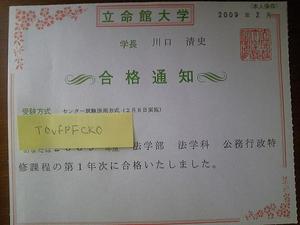 (本人保存)
立命館大学
2009 年 2 月
学長 川口 清史
合格通知
受験方式 センター試験併用方式(2月8日実施)
TOvfPFCKO
法学部 法学科 公務行政特
修課程の第1年次に合格いたしました。